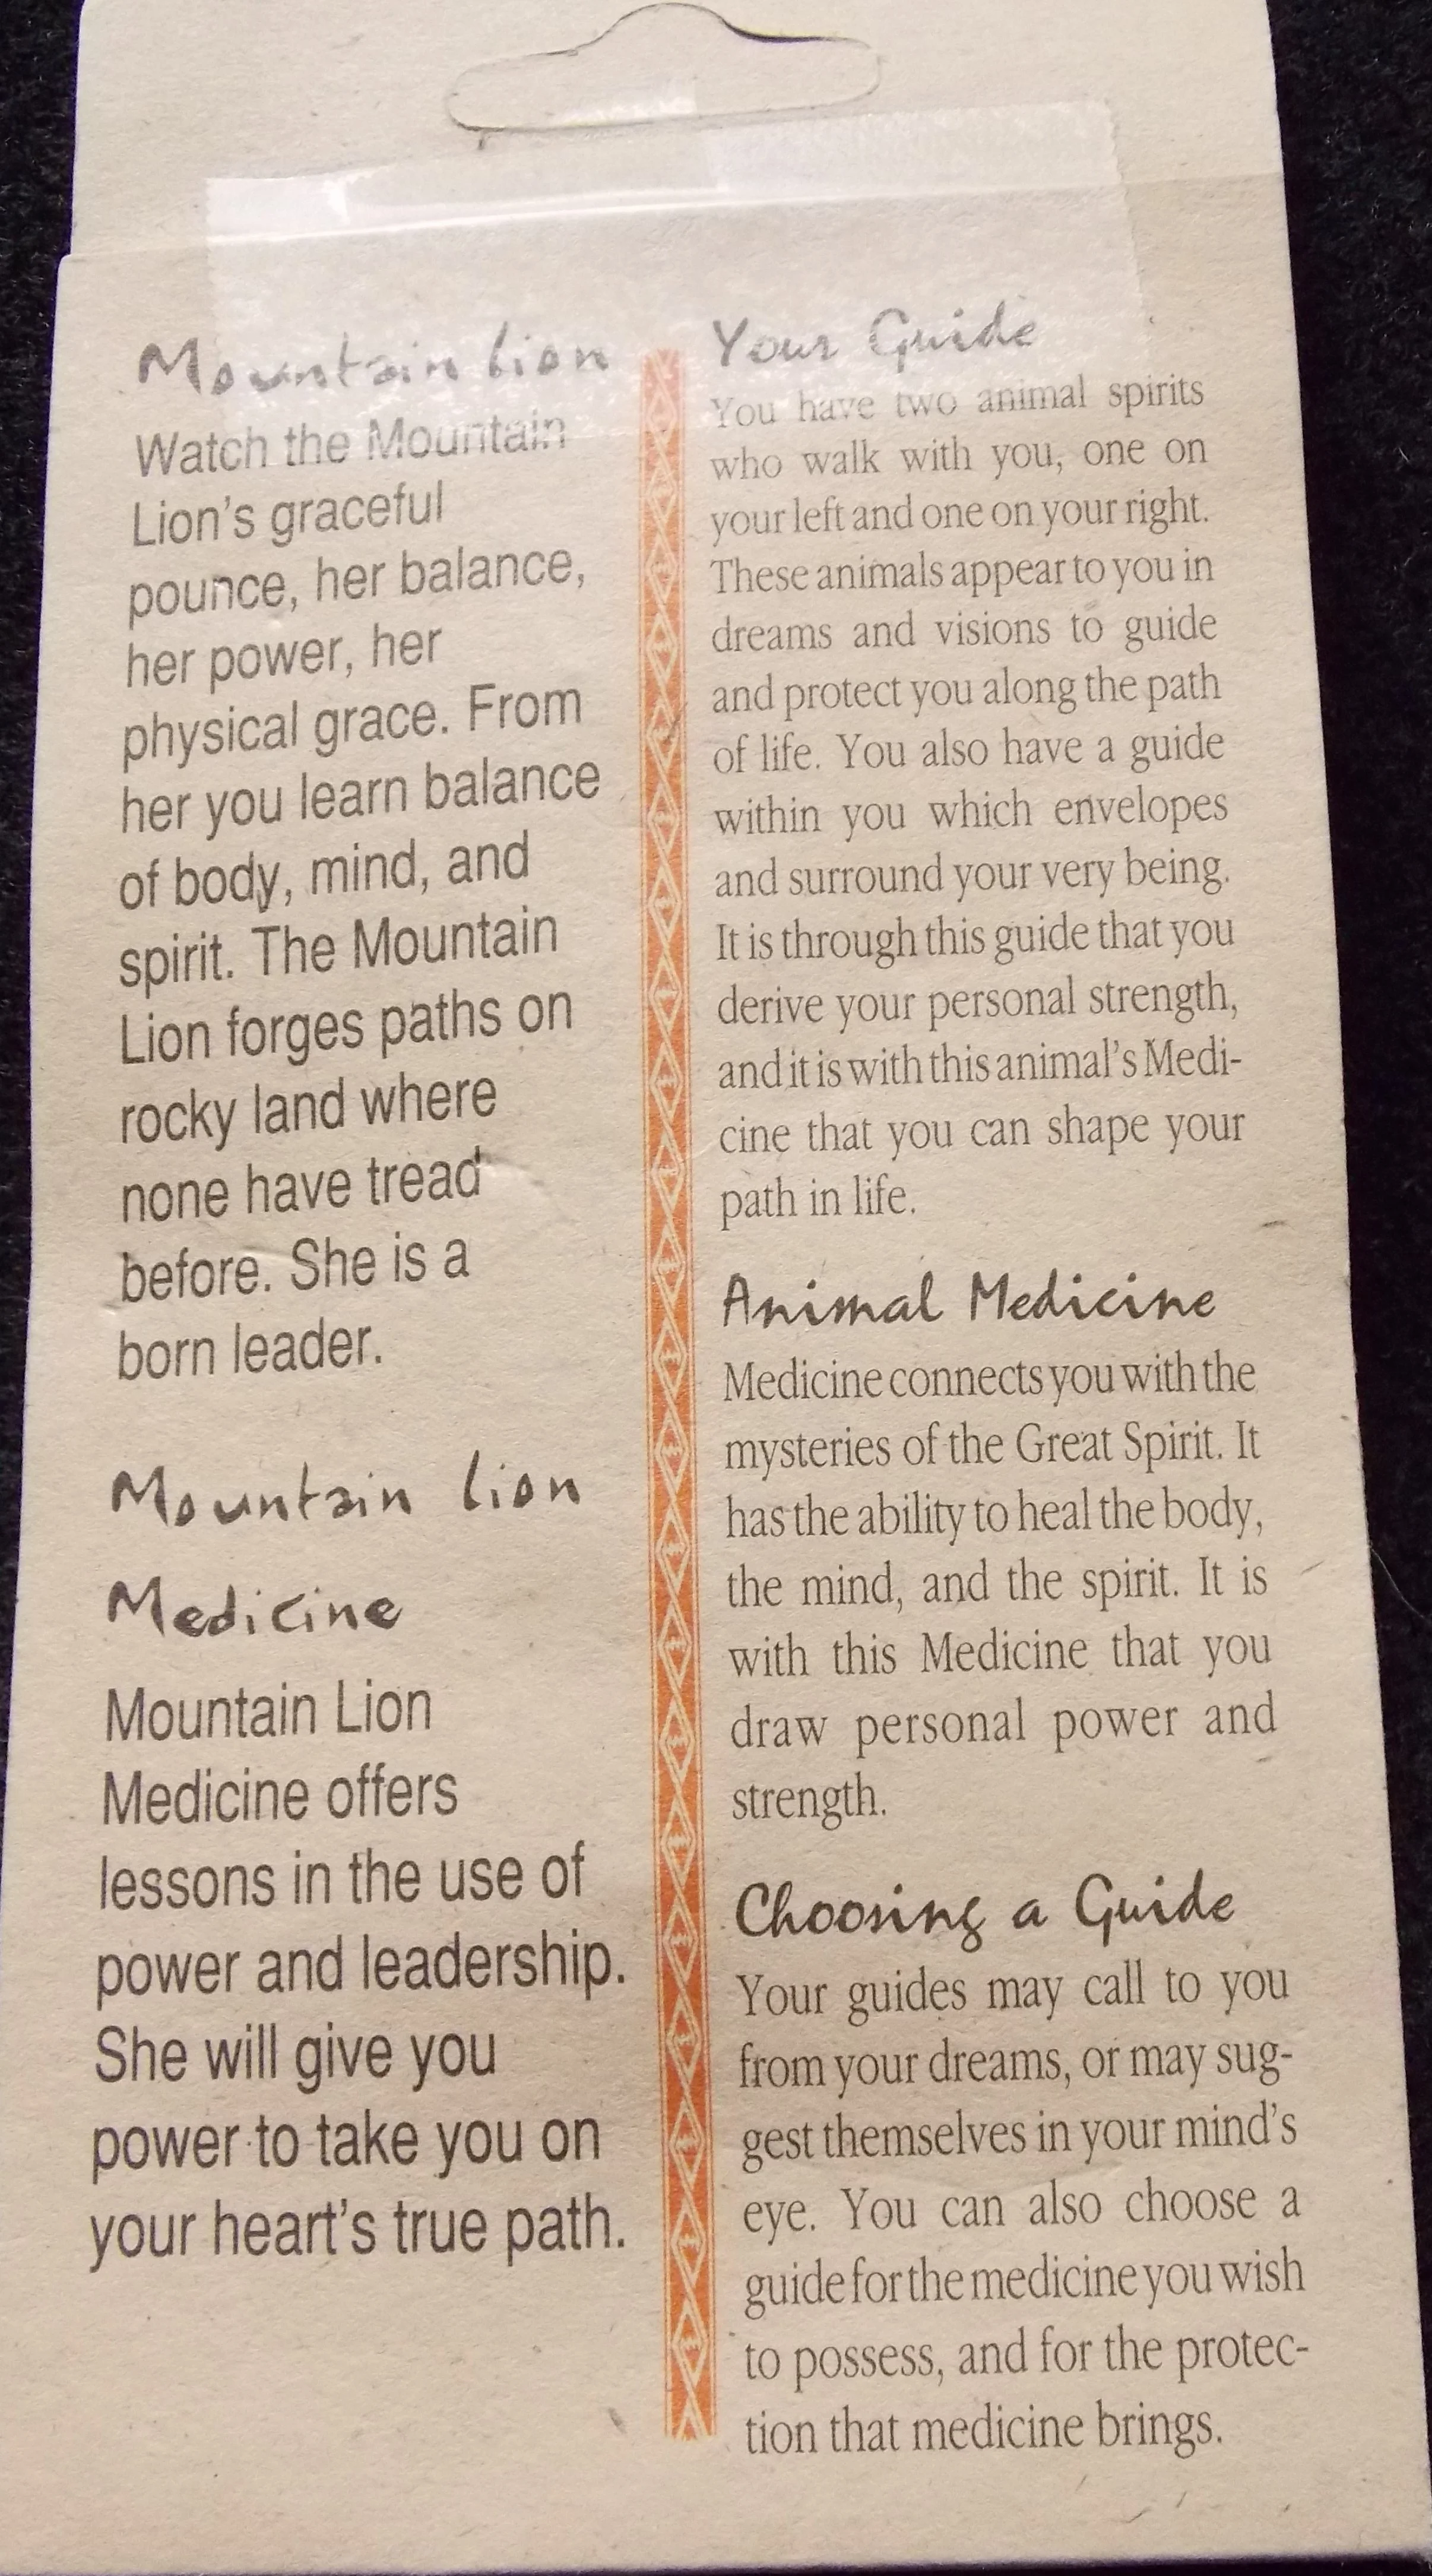 Mountain Lion
Watch the Mountain
Lion's graceful
pounce, her balance,
her power, her
physical grace. From
her you learn balance
of body, mind, and
spirit. The Mountain
Lion forges paths on
rocky land where
none have tread
before. She is a
born leader.
Mountain Lion
Medicine
Mountain Lion
Medicine offers
lessons in the use of
power and leadership.
She will give you
power to take you on
your heart's true path.
Your Guide
You have two animal spirits
who walk with you, one on
your left and one on your right.
These animals appear to you in
dreams and visions to guide
and protect you along the path
of life. You also have a guide
within you which envelopes
and surround your very being.
It is through this guide that you
derive your personal strength,
and it is with this animal's Medi-
cine that you can shape your
path in life.
Animal Medicine
Medicine connects you with the
mysteries of the Great Spirit. It
has the ability to heal the body,
the mind, and the spirit. It is
with this Medicine that you
draw personal power and
strength.
Choosing a Guide
Your guides may call to you
from your dreams, or may sug-
gest themselves in your mind's
eye. You can also choose a
guide for the medicine you wish
to possess, and for the protec-
tion that medicine brings.